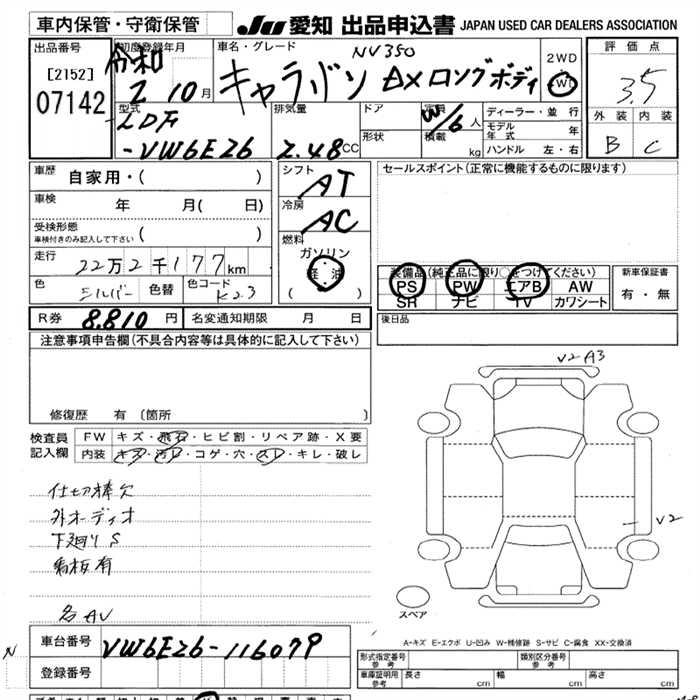 車内保管・守衛保管
JU 愛知 出品申込書 JAPAN USED CAR DEALERS ASSOCIATION
出品番号
[2152]
07142
初度登録年月
令和
2 10月
車名・グレード
NV350
キャラバン DXロングボディ
2WD
4WD
評価点
3.5
外装 内装
B C
型式
-LDF
-VW6E26
排気量
2.48CC
ドア
形状
定員
W/6人
積載
kg
ディーラー・並行
モデル年式 年
ハンドル 左・右
車歴
自家用・( )
車検
年 月( 日)
受検形態
車検付きのみ記入して下さい ( )
走行
22万2千177km
色
シルバー
色替
色コード
K23
シフト
AT
冷房
AC
燃料
ガソリン
軽油
( )
セールスポイント(正常に機能するものに限ります)
装備品(純正品に限り○をつけてください)
PS PW エアB AW
SR ナビ TV カワシート
新車保証書
有・無
R券 8.810円
名変通知期限 月 日
後日品
注意事項申告欄(不具合内容等は具体的に記入して下さい)
修復歴 有 〔箇所 〕
検査員記入欄
FW キズ・飛石・ヒビ割・リペア跡・X要
内装 キズ・汚レ・コゲ・穴・スレ・キレ・破レ
仕切棒欠
外オーディオ
下廻りS
看板有
名AV
V2 A3
V2
スペア
A-キズ E-エクボ U-凹み W-補修跡 S-サビ C-腐食 XX-交換済
N
車台番号
VW6E26-116079
登録番号
形式指定番号
参考
類別区分番号
参考
車庫証明用
参考
長さ cm
幅 cm
高さ cm